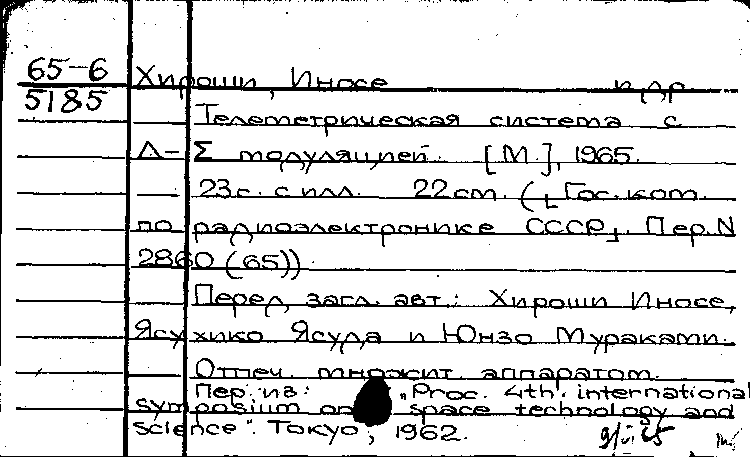 65-6
5185
Хироши, Иносе и др
Телеметрическая система с
Δ-Σ модуляцией. [М.], 1965.
23с. с илл. 22 см. (Гос. ком.
по радиоэлектронике СССР. Пер. N
2860 (65))
Перед загл. авт.: Хироши Иносе,
Ясухико Ясуда и Юнзо Мураками.
Отпеч. множит. аппаратом.
Пер. из: "Proc. 4th. international
symposium on space technology and
science". Токуо, 1962.